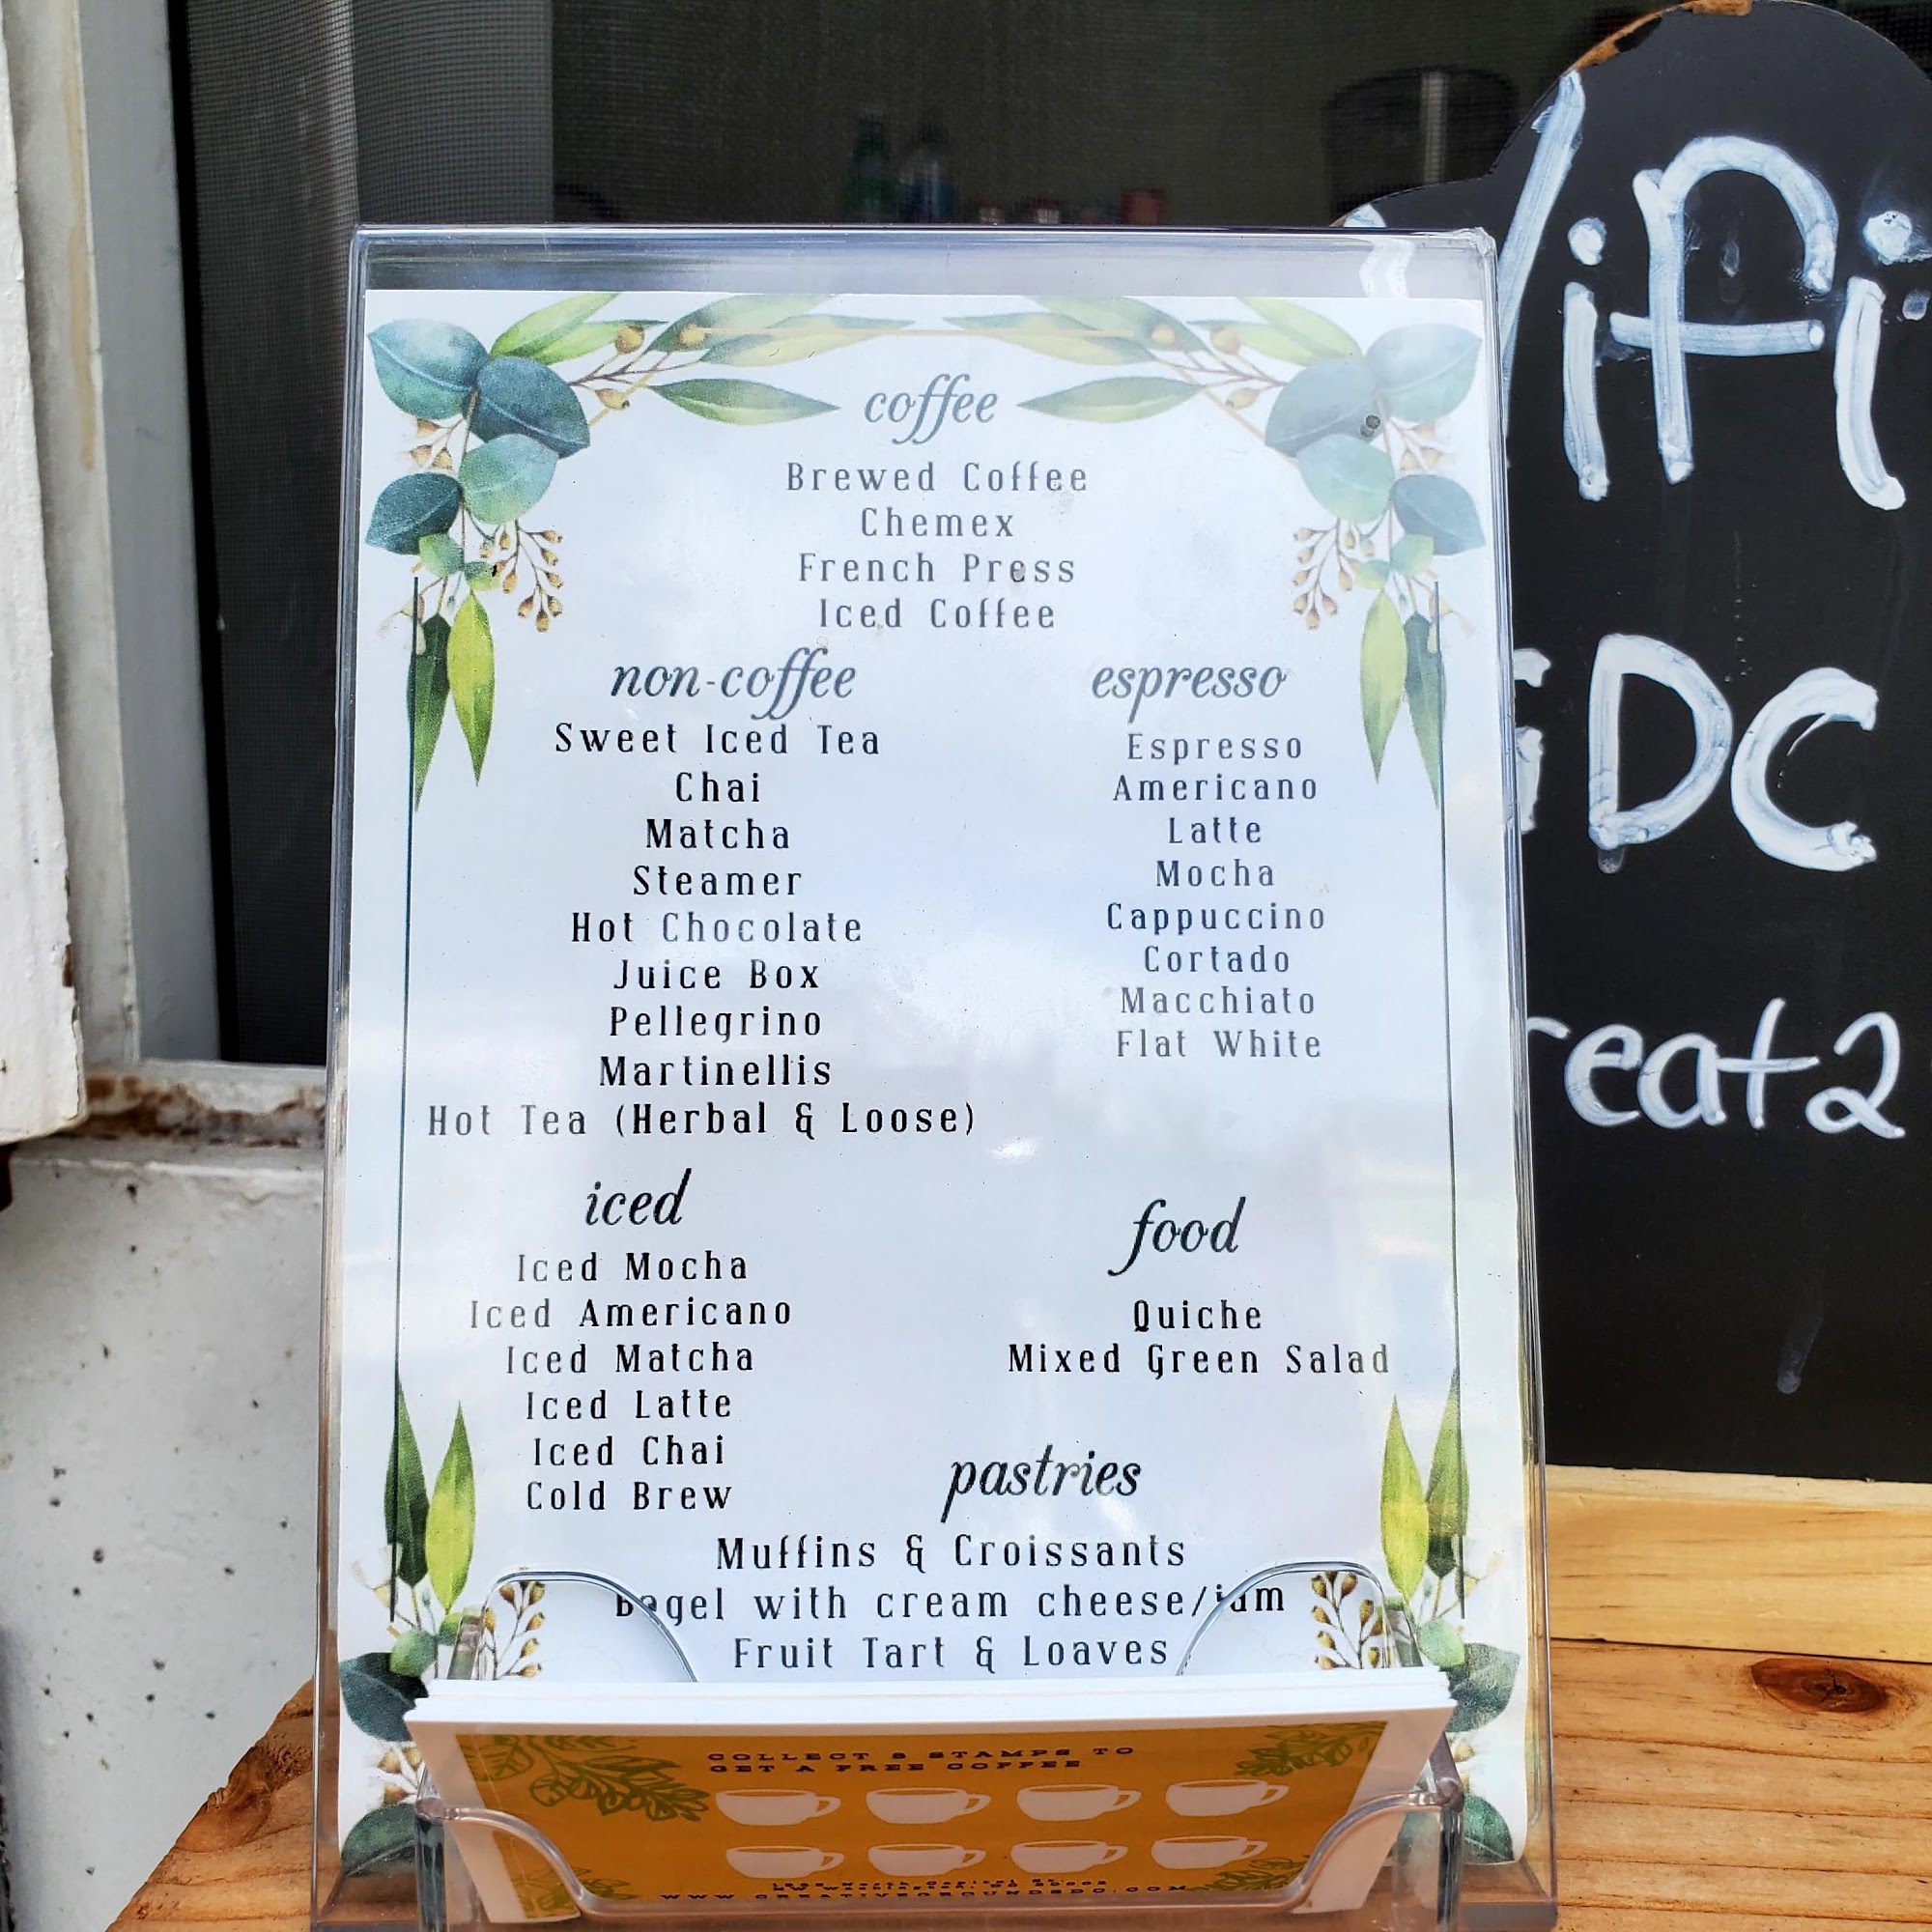 coffee
Brewed Coffee
Chemex
French Press
Iced Coffee
non-coffee
Sweet Iced Tea
Chai
Matcha
Steamer
Hot Chocolate
Juice Box
Pellegrino
Martinellis
Hot Tea (Herbal & Loose)
espresso
Espresso
Americano
Latte
Mocha
Cappuccino
Cortado
Macchiato
Flat White
iced
Iced Mocha
Iced Americano
Iced Matcha
Iced Latte
Iced Chai
Cold Brew
food
Quiche
Mixed Green Salad
pastries
Muffins & Croissants
Bagel with cream cheese/jam
Fruit Tart & Loaves
COLLECT 8 STAMPS TO
GET A FREE COFFEE
WWW.CREATIVEGROUNDSDC.COM
ifi
GDC
reat2